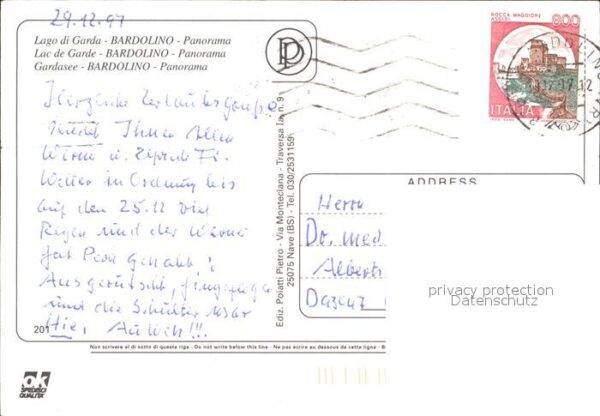 29.12.97
Lago di Garda - BARDOLINO - Panorama
Lac de Garde - BARDOLINO - Panorama
Gardasee - BARDOLINO - Panorama
Herzliche Urlaubsgrüße
Ihnen Allen
Wetter in Ordnung bis
auf den 25.12 viel
Regen und der
hat Pech gehabt!
Ausgerutscht,
und die Schulter war
Hin, Au Weh!!!
201
OK
SPEDISCI
QUALITÀ
PD
Ediz. Poiatti Pietro - Via Monteclana - Traversa Ia, n. 9
25075 Nave (BS) - Tel. 030/2531159
ROCCA MAGGIORE
ASSISI
800
ITALIA
ADDRESS
Herrn
Dr. med
privacy protection
Datenschutz
Non scrivere al di sotto di questa riga - Do not write below this line - Ne pas écrire au dessous de cette ligne -